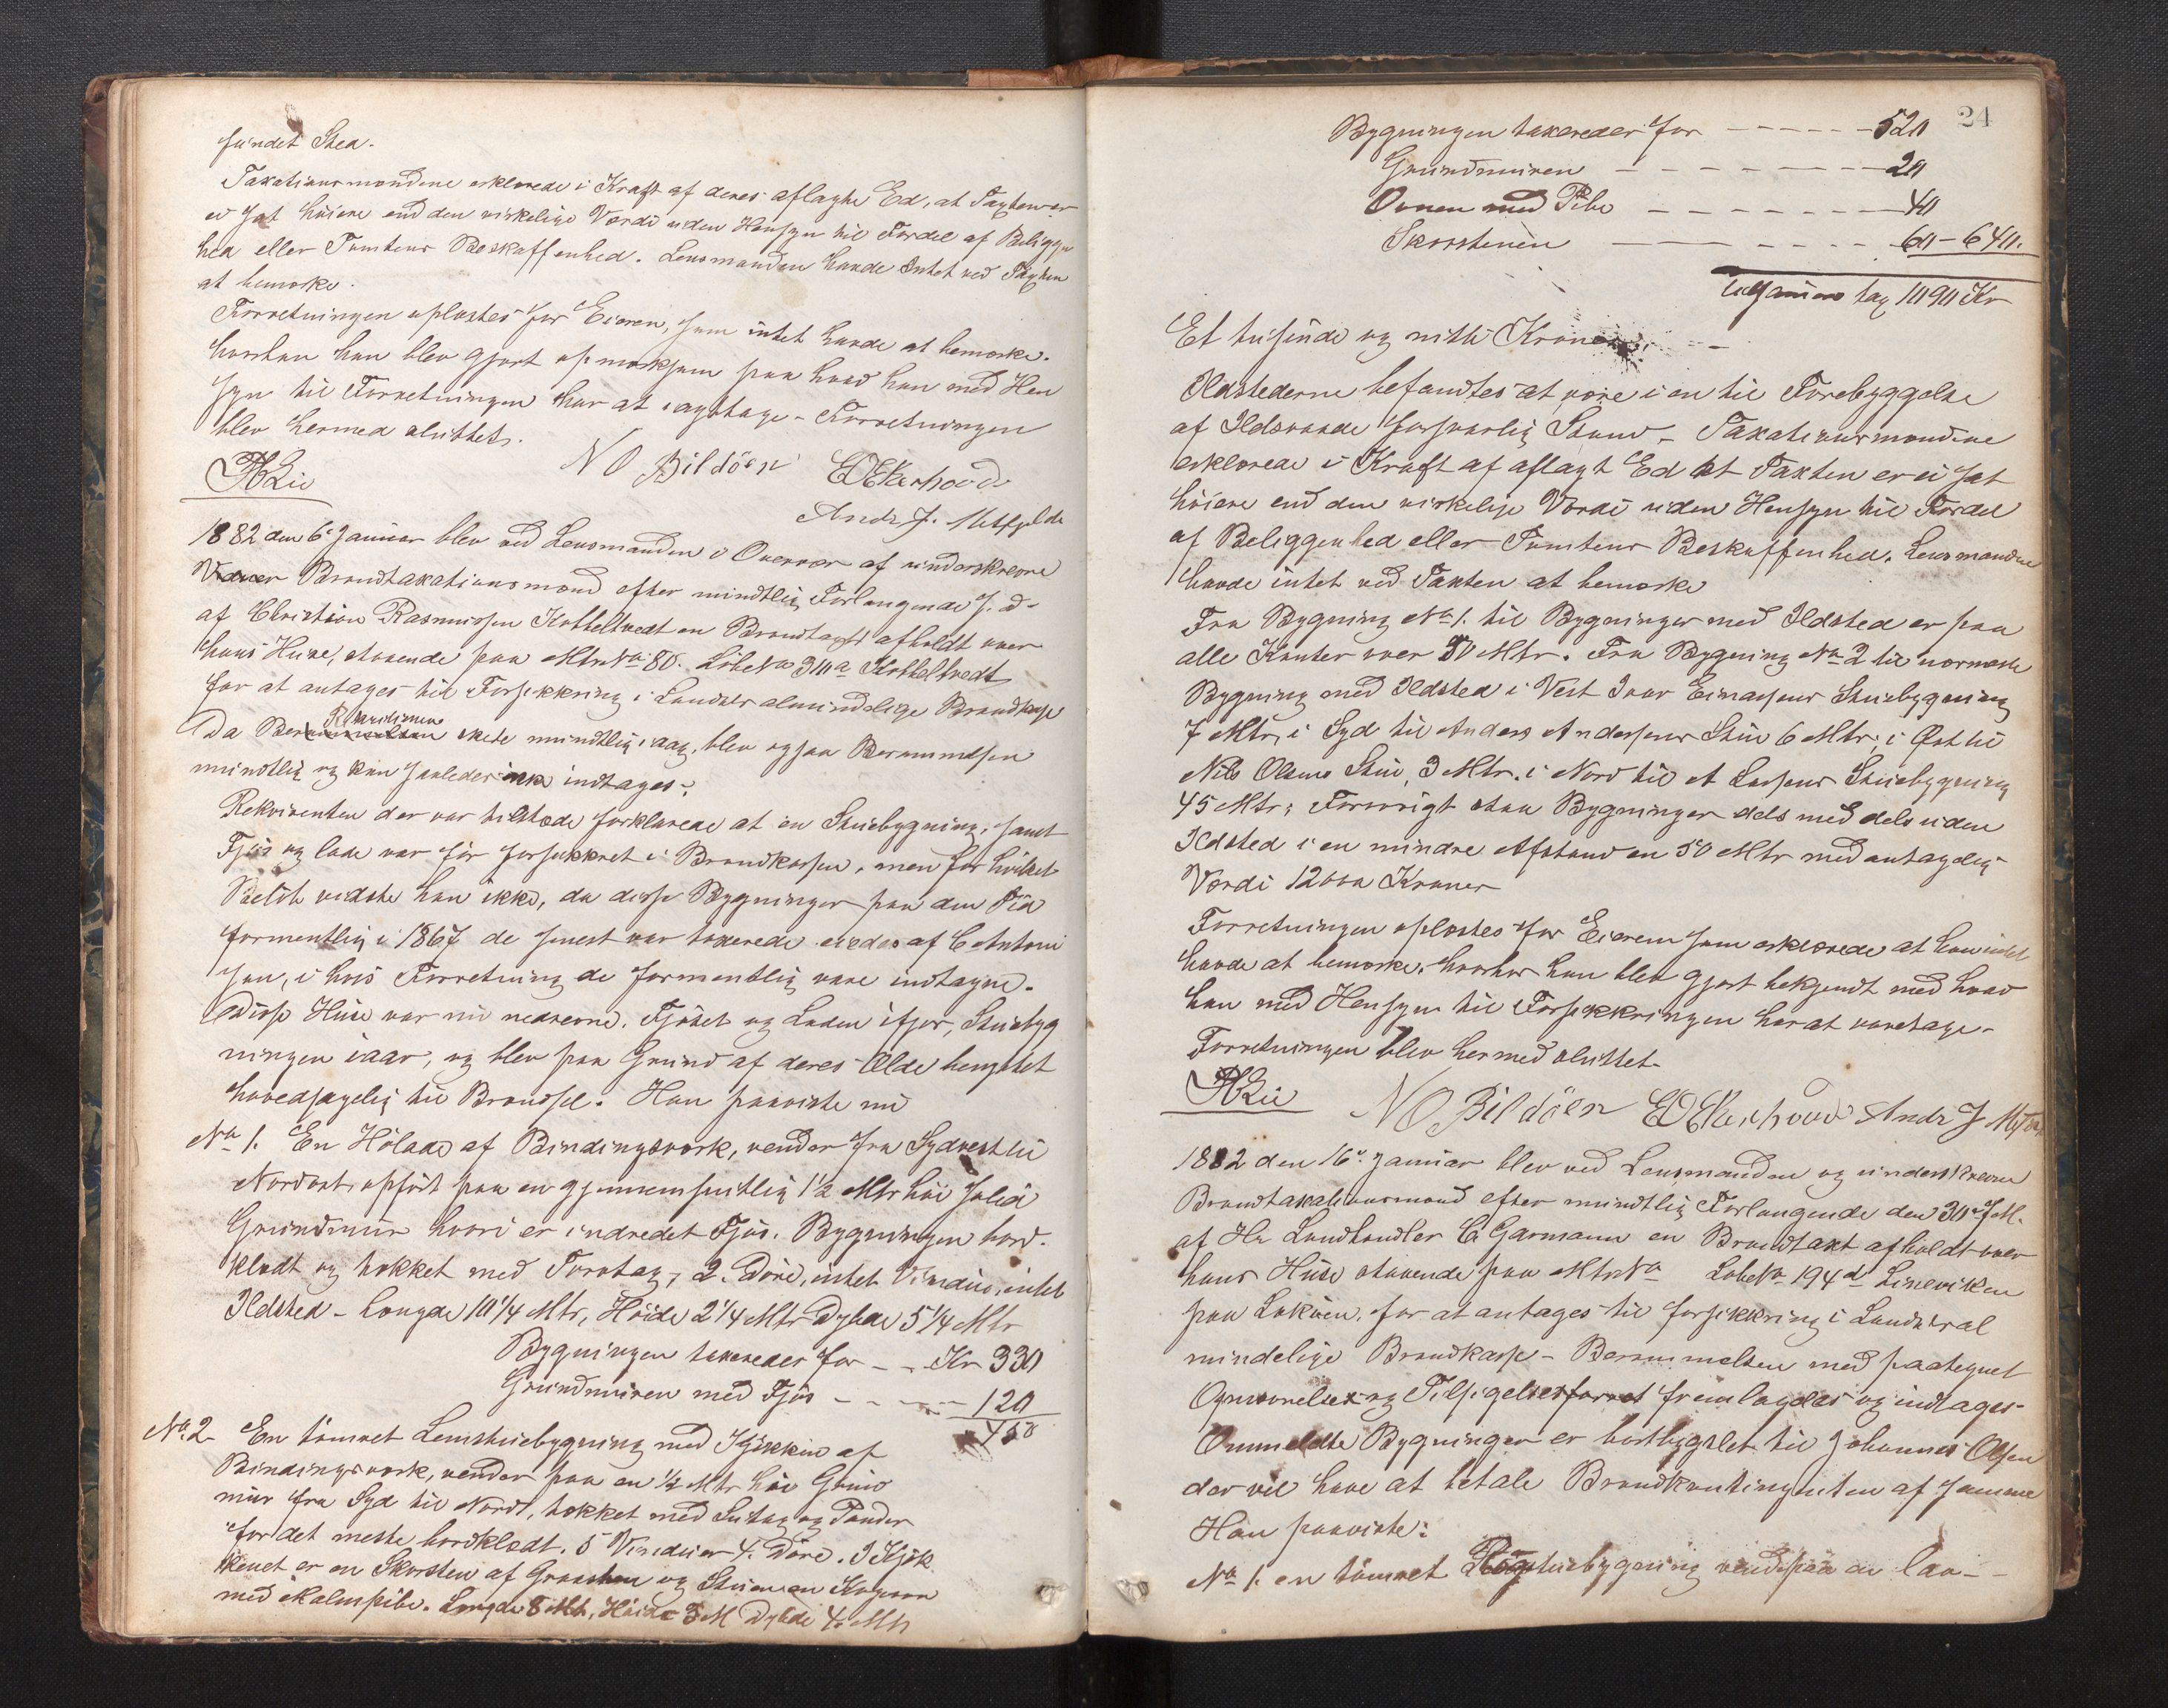 fundet Sted.
Taxationsmændene erklærede i Kraft af deres aflagte Ed, at Taxten er
ei sat høiere end den virkelige Værdi uden Hensyn til Fordel af Beliggen
hed eller Tomtens Beskaffenhed. Lensmanden havde Intet ved Taxten
at bemærke.
Forretningen oplæstes for Eieren, som intet havde at bemærke.
hvorhan han blev gjort opmærksom paa hvad han med Hen
syn til Forretningen har at iagttage - Forretningen
blev hermed sluttet.
HLie NO Bildöen EOEkerhovd
Andr J.
1882 den 6te Januar blev ved Lensmanden i Overvær af underskrevne
Brandtaxationsmænd efter mundtlig Forlangende s. d.
af Christian Rasmussen Kobbeltvedt en Brandtaxt afholdt over
hans Huse, staaende paa Mtr No 80. Löbe No 310 a Kobbeltvedt
for at antages til Forsikkring i Landets almindelige Brandkasse
Rekvisitionen
Da skete mundtlig idag, blev ogsaa Berammelsen
mundtlig og kan saaledes ikke indtages.
Rekvirenten der var tilstæde forklarede at en Stuebygning, samt
Fjös og lade var för forsikkret i Brandkassen, men for hvilket
Belöb vidste han ikke, da disse Bygninger paa den Tid
formentlig i 1867 de senest var taxerede eiedes af C Antoni
sen, i hvis Forretning de formentlig vare indtagne.
Disse Huse var nu nedrevne. Fjöset og Laden ifjor, Stuebyg
ningen iaar, og blev paa Grund af deres Ælde benyttet
hovedsagelig til Brændsel. Han paaviste nu
No 1. En Hölade af Bindingsværk, vender fra Sydvest til
Nordost, opfört paa en gjennemsnitlig 1½ Mtr höi solid
Grundmur hvori er indredet Fjös. Bygningen bord-
klædt og tækket med Torvtag, 2. Döre, intet Vindue, intet
Ildsted - Længde 10¼ Mtr, Höide 2¼ Mtr Dybde 5¼ Mtr
Bygningen taxeredes for - - Kr 330
Grundmuren med Fjös - - - 120
450
No. 2. En tömret Lemstuebygning med Kjökken af
Bindingsværk, vender paa en ½ Mtr höi Grund
mur fra Syd til Nord, tækket med Sutag og Pander
for det meste bordklædt. 5 Vinduer 4. Döre. I Kjök
kenet er en Skorsten af Graasten og Stuen en Kogeovn
med Malmpibe. Længde 8 Mtr, Höide 3 M Dybde 4 Mtr
24
Bygningen taxeredes for - - - - - 520
Grundmuren - - - - - - - 20
Ovnen med Pibe - - - - - - - 40
Skorstenen - - - - - 60 - 640.
tilsammens tax 1090 Kr
Et tusinde og nitti Kroner. - -
Ildstederne befandtes at være i en til Forebyggelse
af Ildsvaade forsvarlig Stand - Taxationsmændene
erklærede i Kraft af aflagt Ed at Taxten er ei sat
höiere end den virkelige Værdi uden Hensyn til Fordel
af Beliggenhed eller Tomtens Beskaffenhed. Lensmanden
havde intet ved Taxten at bemærke
Fra Bygning No 1. til Bygninger med Ildsted er paa
alle Kanter over 50 Mtr. Fra Bygning No 2 til nærmeste
Bygning med Ildsted i Vest Ivar Einarsens Stuebygning
7 Mtr, i Syd til Anders Andersens Stue 6 Mtr; i Öst til
Nils Olsens Stue, 3 Mtr. i Nord til et Larsens Stuebygning
45 Mtr; Forövrigt staa Bygninger dels med dels uden
Ildsted i en mindre Afstand en 50 Mtr med antagelig
Værdi 12000 Kroner
Forretningen oplæstes for Eieren som erklærede at han intet
havde at bemærke. hvorhos han blev gjort bekjendt med hvad
han med Hensyn til Forsikkringen har at varetage.
Forretningen blev hermed sluttet.
HLie NO Bildöen EOEkerhovd Andr J
1882 den 16de Januar blev ved Lensmanden og underskrevne
Brandtaxationsmænd efter mundtlig Forlangende den 30te f. M.
af Hr Landhandler C. Garmann en Brandtaxt afholdt over
hans Huse staaende paa Mtr No Löbe No 194 d
paa for at antages til forsikkring i Landets al
mindelige Brandkasse - Berammelsen med paategnet
og Tilsigelse fremlagdes og indtages.
Ommeldte Bygninger er bortbygslet til Johannes Olsen
der vil have at betale Brandkontingenten af samme
Han paaviste:
No 1. en tömret Rögstuebygning vend paa en lav - -